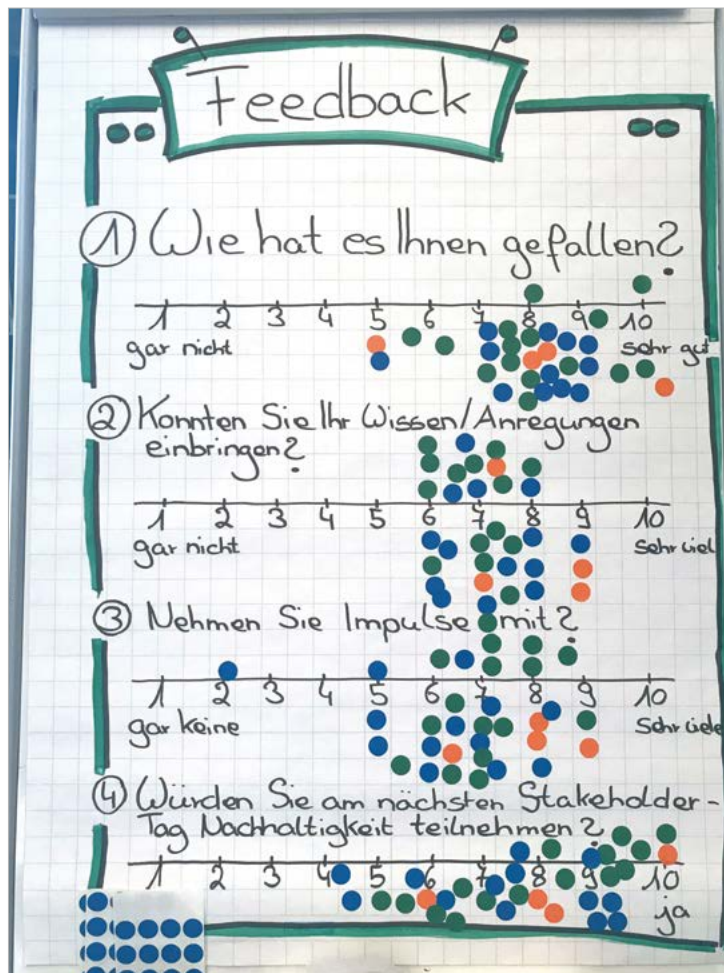 Feedback
1 Wie hat es Ihnen gefallen?
1 2 3 4 5 6 7 8 9 10
gar nicht sehr gut
2 Konnten Sie Ihr Wissen/Anregungen
einbringen?
1 2 3 4 5 6 7 8 9 10
gar nicht sehr viel
3 Nehmen Sie Impulse mit?
1 2 3 4 5 6 7 8 9 10
gar keine sehr viele
4 Würden Sie am nächsten Stakeholder-
Tag Nachhaltigkeit teilnehmen?
1 2 3 4 5 6 7 8 9 10
ja